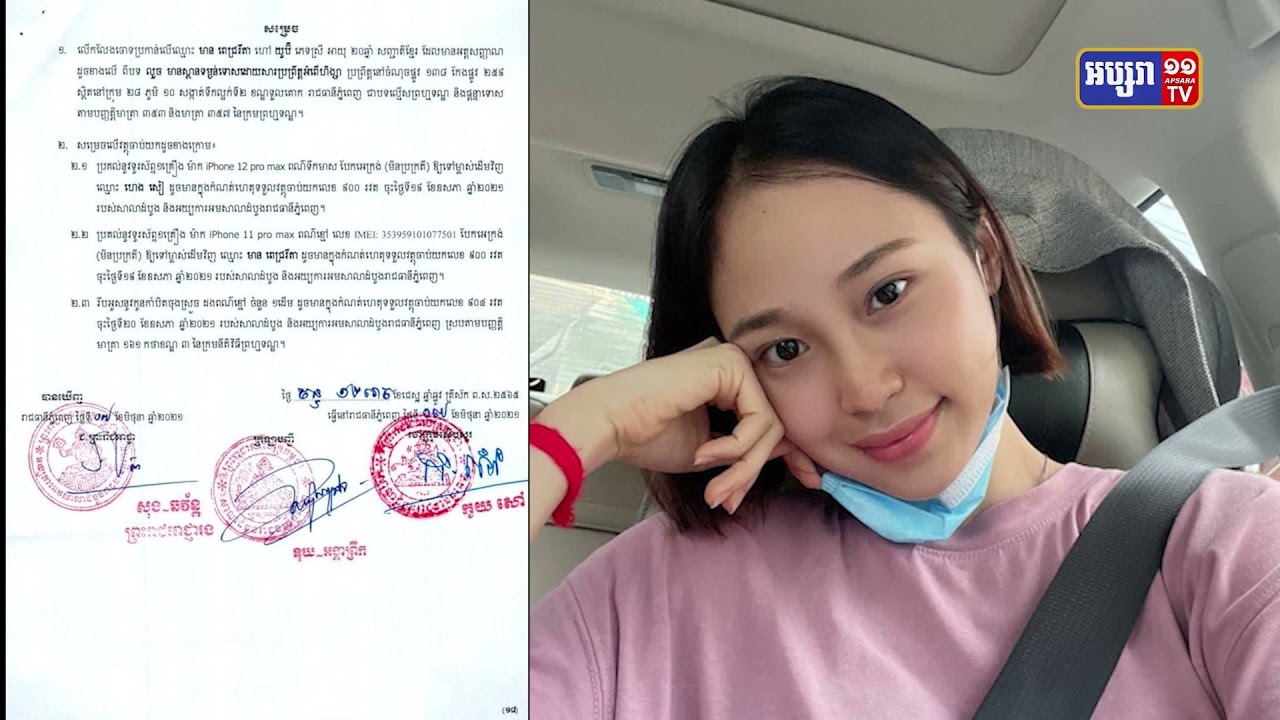 សម្រេច
១. លើកលែងចោទប្រកាន់លើឈ្មោះ មាន ពេជ្ររីតា ហៅ យូប៊ី ភេទស្រី អាយុ ២០ឆ្នាំ សញ្ជាតិខ្មែរ ដែលមានអត្តសញ្ញាណ
ដូចខាងលើ ពីបទ លួច មានស្ថានទម្ងន់ទោសដោយសារប្រព្រឹត្តអំពើហិង្សា ប្រព្រឹត្តនៅចំណុចផ្លូវ ១៣៨ កែងផ្លូវ ២៥៩
ស្ថិតនៅក្រុម ២៨ ភូមិ ១០ សង្កាត់ទឹកល្អក់ទី២ ខណ្ឌទួលគោក រាជធានីភ្នំពេញ ជាបទល្មើសព្រហ្មទណ្ឌ និងផ្តន្ទាទោស
តាមបញ្ញត្តិមាត្រា ៣៥៣ និងមាត្រា ៣៥៧ នៃក្រមព្រហ្មទណ្ឌ។
២. សម្រេចលើវត្ថុចាប់យកដូចខាងក្រោម៖
២.១ ប្រគល់នូវទូរស័ព្ទ១គ្រឿង ម៉ាក iPhone 12 pro max ពណ៌ទឹកមាស បែកអេក្រង់ (មិនប្រក្រតី) ឱ្យទៅម្ចាស់ដើមវិញ
ឈ្មោះ ហេង សៀ ដូចមានក្នុងកំណត់ហេតុទទួលវត្ថុចាប់យកលេខ ៩០០ រវត ចុះថ្ងៃទី១៩ ខែឧសភា ឆ្នាំ២០២១
របស់សាលាដំបូង និងអយ្យការអមសាលាដំបូងរាជធានីភ្នំពេញ។
២.២ ប្រគល់នូវទូរស័ព្ទ១គ្រឿង ម៉ាក iPhone 11 pro max ពណ៌ខ្មៅ លេខ IMEI: 353959101077501 បែកអេក្រង់
(មិនប្រក្រតី) ឱ្យទៅម្ចាស់ដើមវិញ ឈ្មោះ មាន ពេជ្ររីតា ដូចមានក្នុងកំណត់ហេតុទទួលវត្ថុចាប់យកលេខ ៩០០ រវត
ចុះថ្ងៃទី១៩ ខែឧសភា ឆ្នាំ២០២១ របស់សាលាដំបូង និងអយ្យការអមសាលាដំបូងរាជធានីភ្នំពេញ។
២.៣ រឹបអូសនូវកូនកាំបិតចុងស្រួច ដងពណ៌ខ្មៅ ចំនួន ១ដើម ដូចមានក្នុងកំណត់ហេតុទទួលវត្ថុចាប់យកលេខ ៩០៤ រវត
ចុះថ្ងៃទី២០ ខែឧសភា ឆ្នាំ២០២១ របស់សាលាដំបូង និងអយ្យការអមសាលាដំបូងរាជធានីភ្នំពេញ ស្របតាមបញ្ញត្តិ
មាត្រា ១៦១ កថាខណ្ឌ ៣ នៃក្រមនីតិវិធីព្រហ្មទណ្ឌ។
បានឃើញ
ថ្ងៃ ខែជេស្ឋ ឆ្នាំឆ្លូវ ត្រីស័ក ព.ស.២៥៦៥
រាជធានីភ្នំពេញ ថ្ងៃទី ០៧ ខែមិថុនា ឆ្នាំ២០២១
ធ្វើនៅរាជធានីភ្នំពេញ ថ្ងៃទី ០៧ ខែមិថុនា ឆ្នាំ២០២១
ក្រឡាបញ្ជី
សុង ឆវ័ន្ត
ព្រះរាជអាជ្ញារង
ទុយ អង្គាព្រឹក
កូយ សៅ
(១៨)
អប្សរា ១១
APSARA
TV